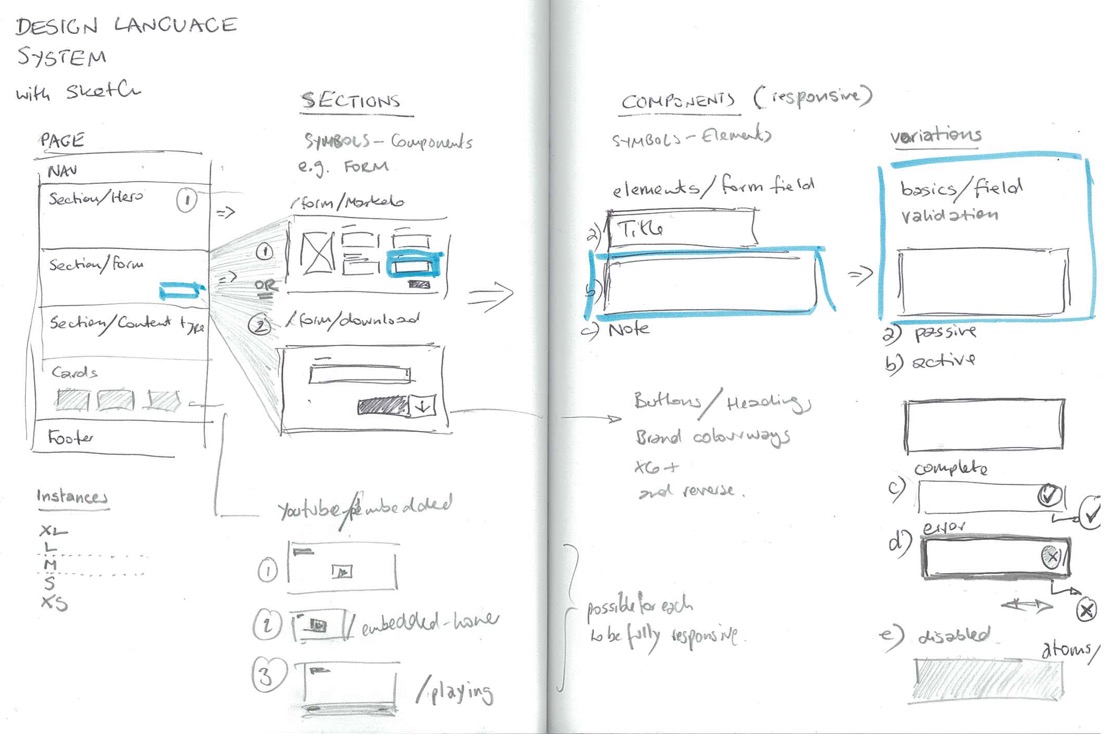 DESIGN LANGUAGE
SYSTEM
with Sketch
PAGE
NAV
Section/Hero
1
Section/form
Section/Content type
Cards
Footer
Instances
XL
L
M
S
XS
SECTIONS
SYMBOLS - Components
e.g. FORM
/form/Marketo
1
OR
2
/form/download
Youtube/embedded
1
2
/embedded-hover
3
/playing
COMPONENTS (responsive)
SYMBOLS - Elements
elements/form field
a) Title
b)
c) Note
Buttons/Headings
Brand colourways
x6+
and reverse.
possible for each
to be fully responsive.
variations
basics/field
validation
a) passive
b) active
complete
c)
error
d)
e) disabled
atoms/